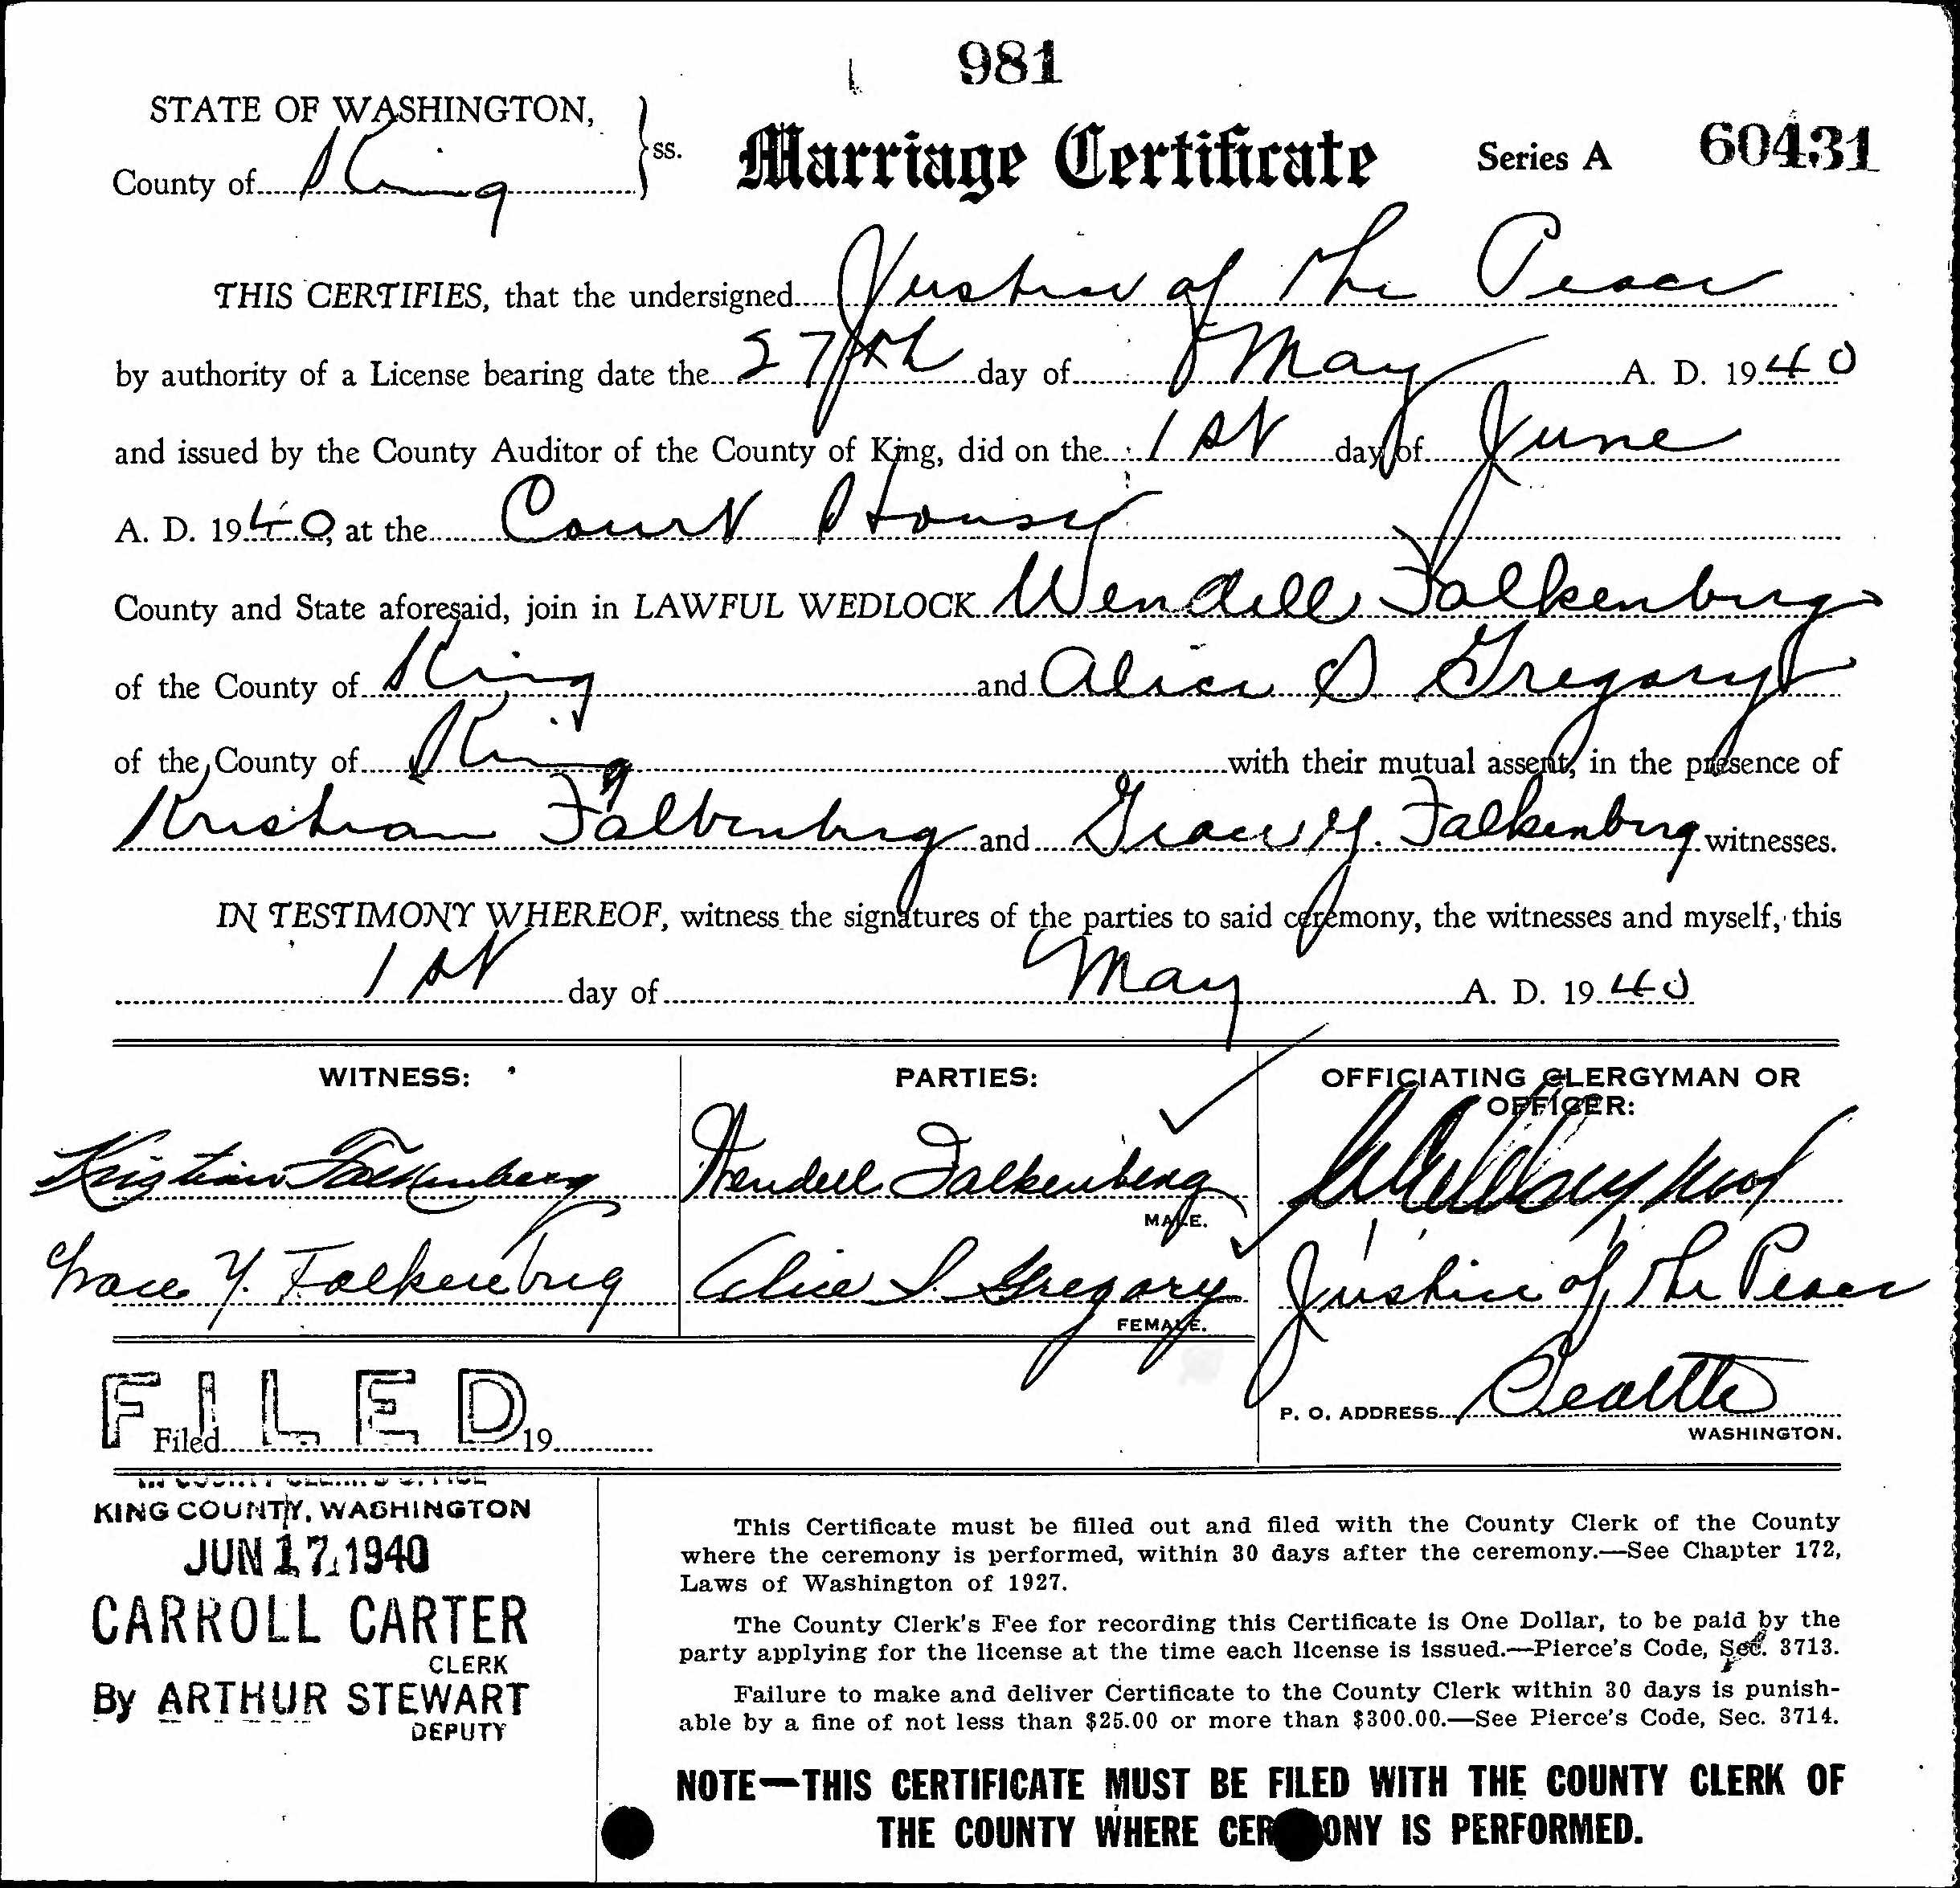 981
STATE OF WASHINGTON,
County of King } ss.
Marriage Certificate
Series A 60431
THIS CERTIFIES, that the undersigned Justice of the Peace
by authority of a License bearing date the 27th day of May A. D. 1940
and issued by the County Auditor of the County of King, did on the 1st day of June
A. D. 1940, at the Court House
County and State aforesaid, join in LAWFUL WEDLOCK Wendell Falkenburg
of the County of King and Alice S Gregory
of the County of King with their mutual assent, in the presence of
Kristian Falkenburg and Grace Y. Falkenburg witnesses.
IN TESTIMONY WHEREOF, witness the signatures of the parties to said ceremony, the witnesses and myself, this
1st day of May A. D. 1940
WITNESS: PARTIES: OFFICIATING CLERGYMAN OR
OFFICER:
Kristian Falkenberg Wendell Falkenberg
MALE.
Grace Y. Falkenburg Alice S. Gregory Justice of the Peace
FEMALE.
P. O. ADDRESS Seattle
WASHINGTON.
FILED
Filed 19
IN COUNTY CLERK'S OFFICE
KING COUNTY, WASHINGTON
JUN 17 1940
CARROLL CARTER
CLERK
By ARTHUR STEWART
DEPUTY
This Certificate must be filled out and filed with the County Clerk of the County
where the ceremony is performed, within 30 days after the ceremony.—See Chapter 172,
Laws of Washington of 1927.
The County Clerk's Fee for recording this Certificate is One Dollar, to be paid by the
party applying for the license at the time each license is issued.—Pierce's Code, Sec. 3713.
Failure to make and deliver Certificate to the County Clerk within 30 days is punish-
able by a fine of not less than $25.00 or more than $300.00.—See Pierce's Code, Sec. 3714.
NOTE—THIS CERTIFICATE MUST BE FILED WITH THE COUNTY CLERK OF
THE COUNTY WHERE CEREMONY IS PERFORMED.